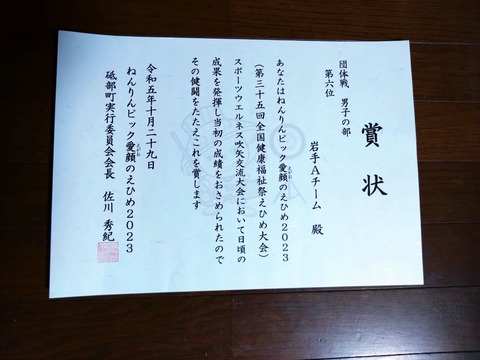 賞状
団体戦 男子の部
第六位
岩手Aチーム 殿
あなたはねんりんピック愛顔のえひめ2023
えがお
(第三十五回全国健康福祉祭えひめ大会)
スポーツウエルネス吹矢交流大会において日頃の
成果を発揮し当初の成績をおさめられたので
その健闘をたたえこれを賞します
令和五年十月二十九日
ねんりんピック愛顔のえひめ2023
えがお
砥部町実行委員会会長 佐川 秀紀